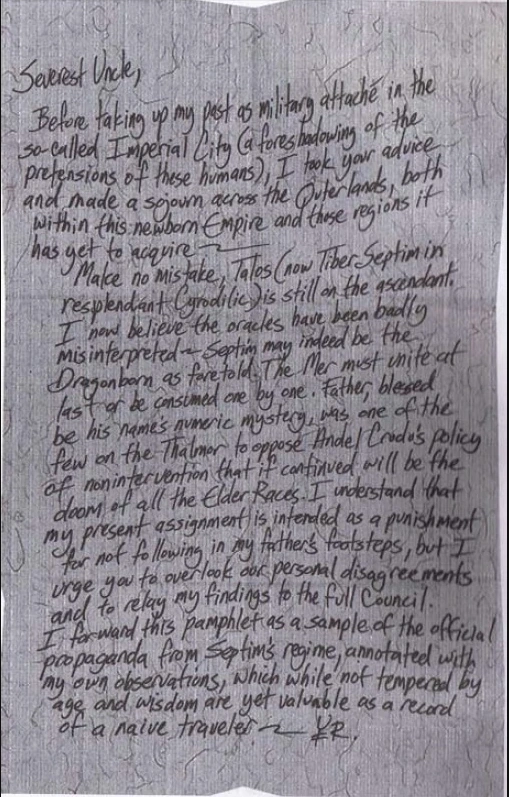 Severest Uncle,
Before taking up my past as military attaché in the
so-called Imperial City (a foreshadowing of the
pretensions of these humans), I took your advice
and made a sojourn across the Outerlands, both
within this newborn Empire and those regions it
has yet to acquire —
Make no mistake, Talos (now Tiber Septim in
resplendant Cyrodilic) is still on the ascendant.
I now believe the oracles have been badly
misinterpreted — Septim may indeed be the
Dragonborn as foretold. The Mer must unite at
last or be consumed one by one. Father, blessed
be his name's numeric mystery, was one of the
few on the Thalmor to oppose Andel Crodo's policy
of nonintervention that if continued will be the
doom of all the Elder Races. I understand that
my present assignment is intended as a punishment
for not following in my father's footsteps, but I
urge you to overlook our personal disagreements
and to relay my findings to the full Council.
I forward this pamphlet as a sample of the official
propaganda from Septim's regime, annotated with
my own observations, which while not tempered by
age and wisdom are yet valuable as a record
of a naive traveler — YR.